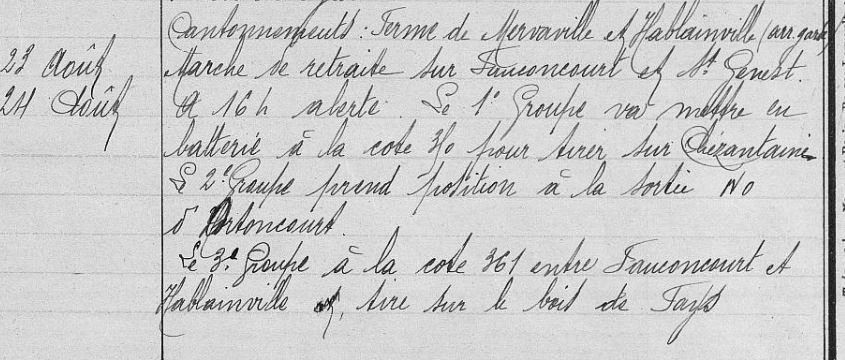 Cantonnements : Ferme de Mervaville et Hablainville (arr. garde)
23 Août Marche de retraite sur Fauconcourt et St Genest.
24 Août A 16 h alerte. Le 1e Groupe va mettre en
batterie à la cote 310 pour tirer sur
Le 2e Groupe prend position à la sortie NO
d'Ortoncourt.
Le 3e Groupe à la cote 361 entre Fauconcourt et
Hablainville et, tire sur le bois de Fays